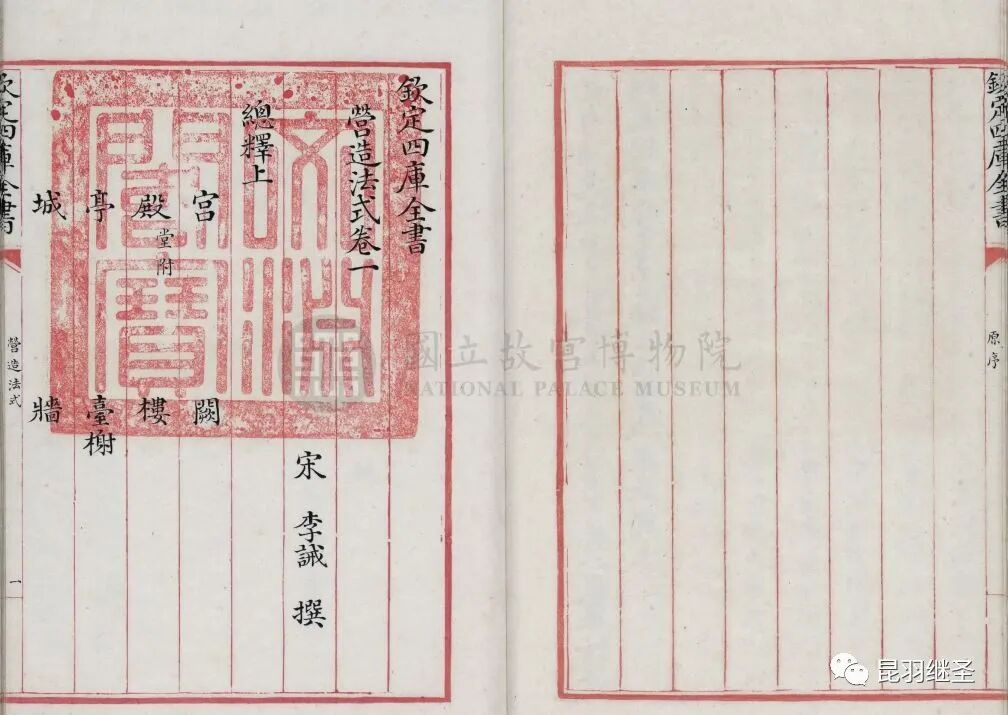 欽定四庫全書
原序
欽定四庫全書
營造法式卷一
宋 李誡 撰
總釋上
宮 闕
殿堂附 樓
亭 臺榭
城 牆
欽定四庫全書
營造法式
一
文淵
閣寶
國立故宮博物院
NATIONAL PALACE MUSEUM
昆羽继圣